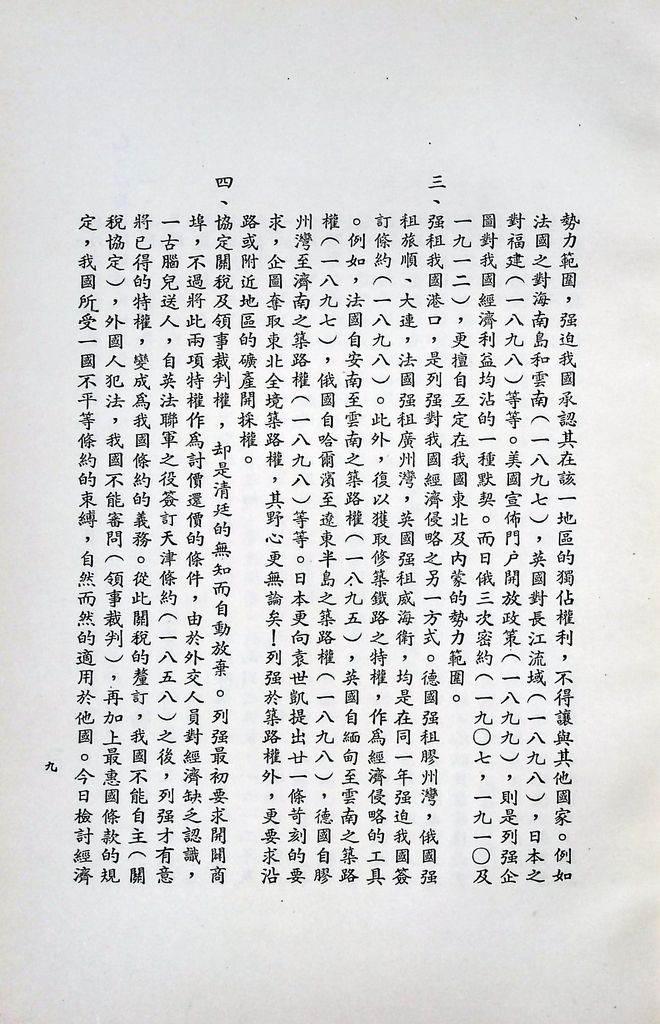 勢力範圍，强迫我國承認其在該一地區的獨佔權利，不得讓與其他國家。例如
法國之對海南島和雲南（一八九七），英國對長江流域（一八九八），日本之
對福建（一八九八）等等。美國宣佈門户開放政策（一八九九），則是列强企
圖對我國經濟利益均沾的一種默契。而日俄三次密約（一九〇七，一九一〇及
一九一二），更擅自互定在我國東北及內蒙的勢力範圍。
三、强租我國港口，是列强對我國經濟侵略之另一方式。德國强租膠州灣，俄國强
租旅順、大連，法國强租廣州灣，英國强租威海衛，均是在同一年强迫我國簽
訂條約（一八九八）。此外，復以獲取修築鐵路之特權，作爲經濟侵略的工具
。例如，法國自安南至雲南之築路權（一八九五），英國自緬甸至雲南之築路
權（一八九七），俄國自哈爾濱至遼東半島之築路權（一八九八），德國自膠
州灣至濟南之築路權（一八九八）等等。日本更向袁世凱提出廿一條苛刻的要
求，企圖奪取東北全境築路權，其野心更無論矣！列强於築路權外，更要求沿
路或附近地區的礦產開採權。
四、協定關稅及領事裁判權，却是清廷的無知而自動放棄。列强最初要求開闢商
埠，不過將此兩項特權作爲討價還價的條件，由於外交人員對經濟缺乏認識，
一古腦兒送人，自英法聯軍之役簽訂天津條約（一八五八）之後，列强才有意
將已得的特權，變成爲我國條約的義務。從此關稅的釐訂，我國不能自主（關
稅協定），外國人犯法，我國不能審問（領事裁判），再加上最惠國條款的規
定，我國所受一國不平等條約的束縛，自然而然的適用於他國。今日檢討經濟
九